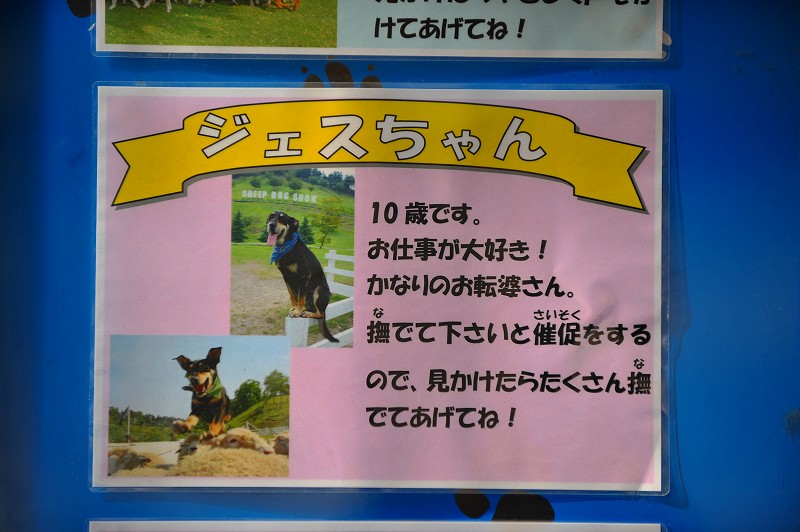 けてあげてね！
ジェスちゃん
SHEEP DOG SHOW
10歳です。
お仕事が大好き！
かなりのお転婆さん。
な さいそく
撫でて下さいと催促をする
な
ので、見かけたらたくさん撫
でてあげてね！